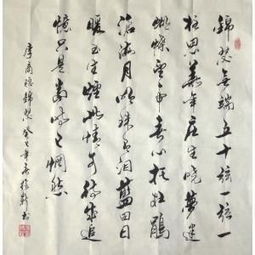 錦瑟無端五十弦一弦一
柱思華年莊生曉夢迷
蝴蝶望帝春心托杜鵑
滄海月明珠有淚藍田日
暖玉生煙此情可待成追
憶只是當時已惘然
李商隱錦瑟 癸巳年 書